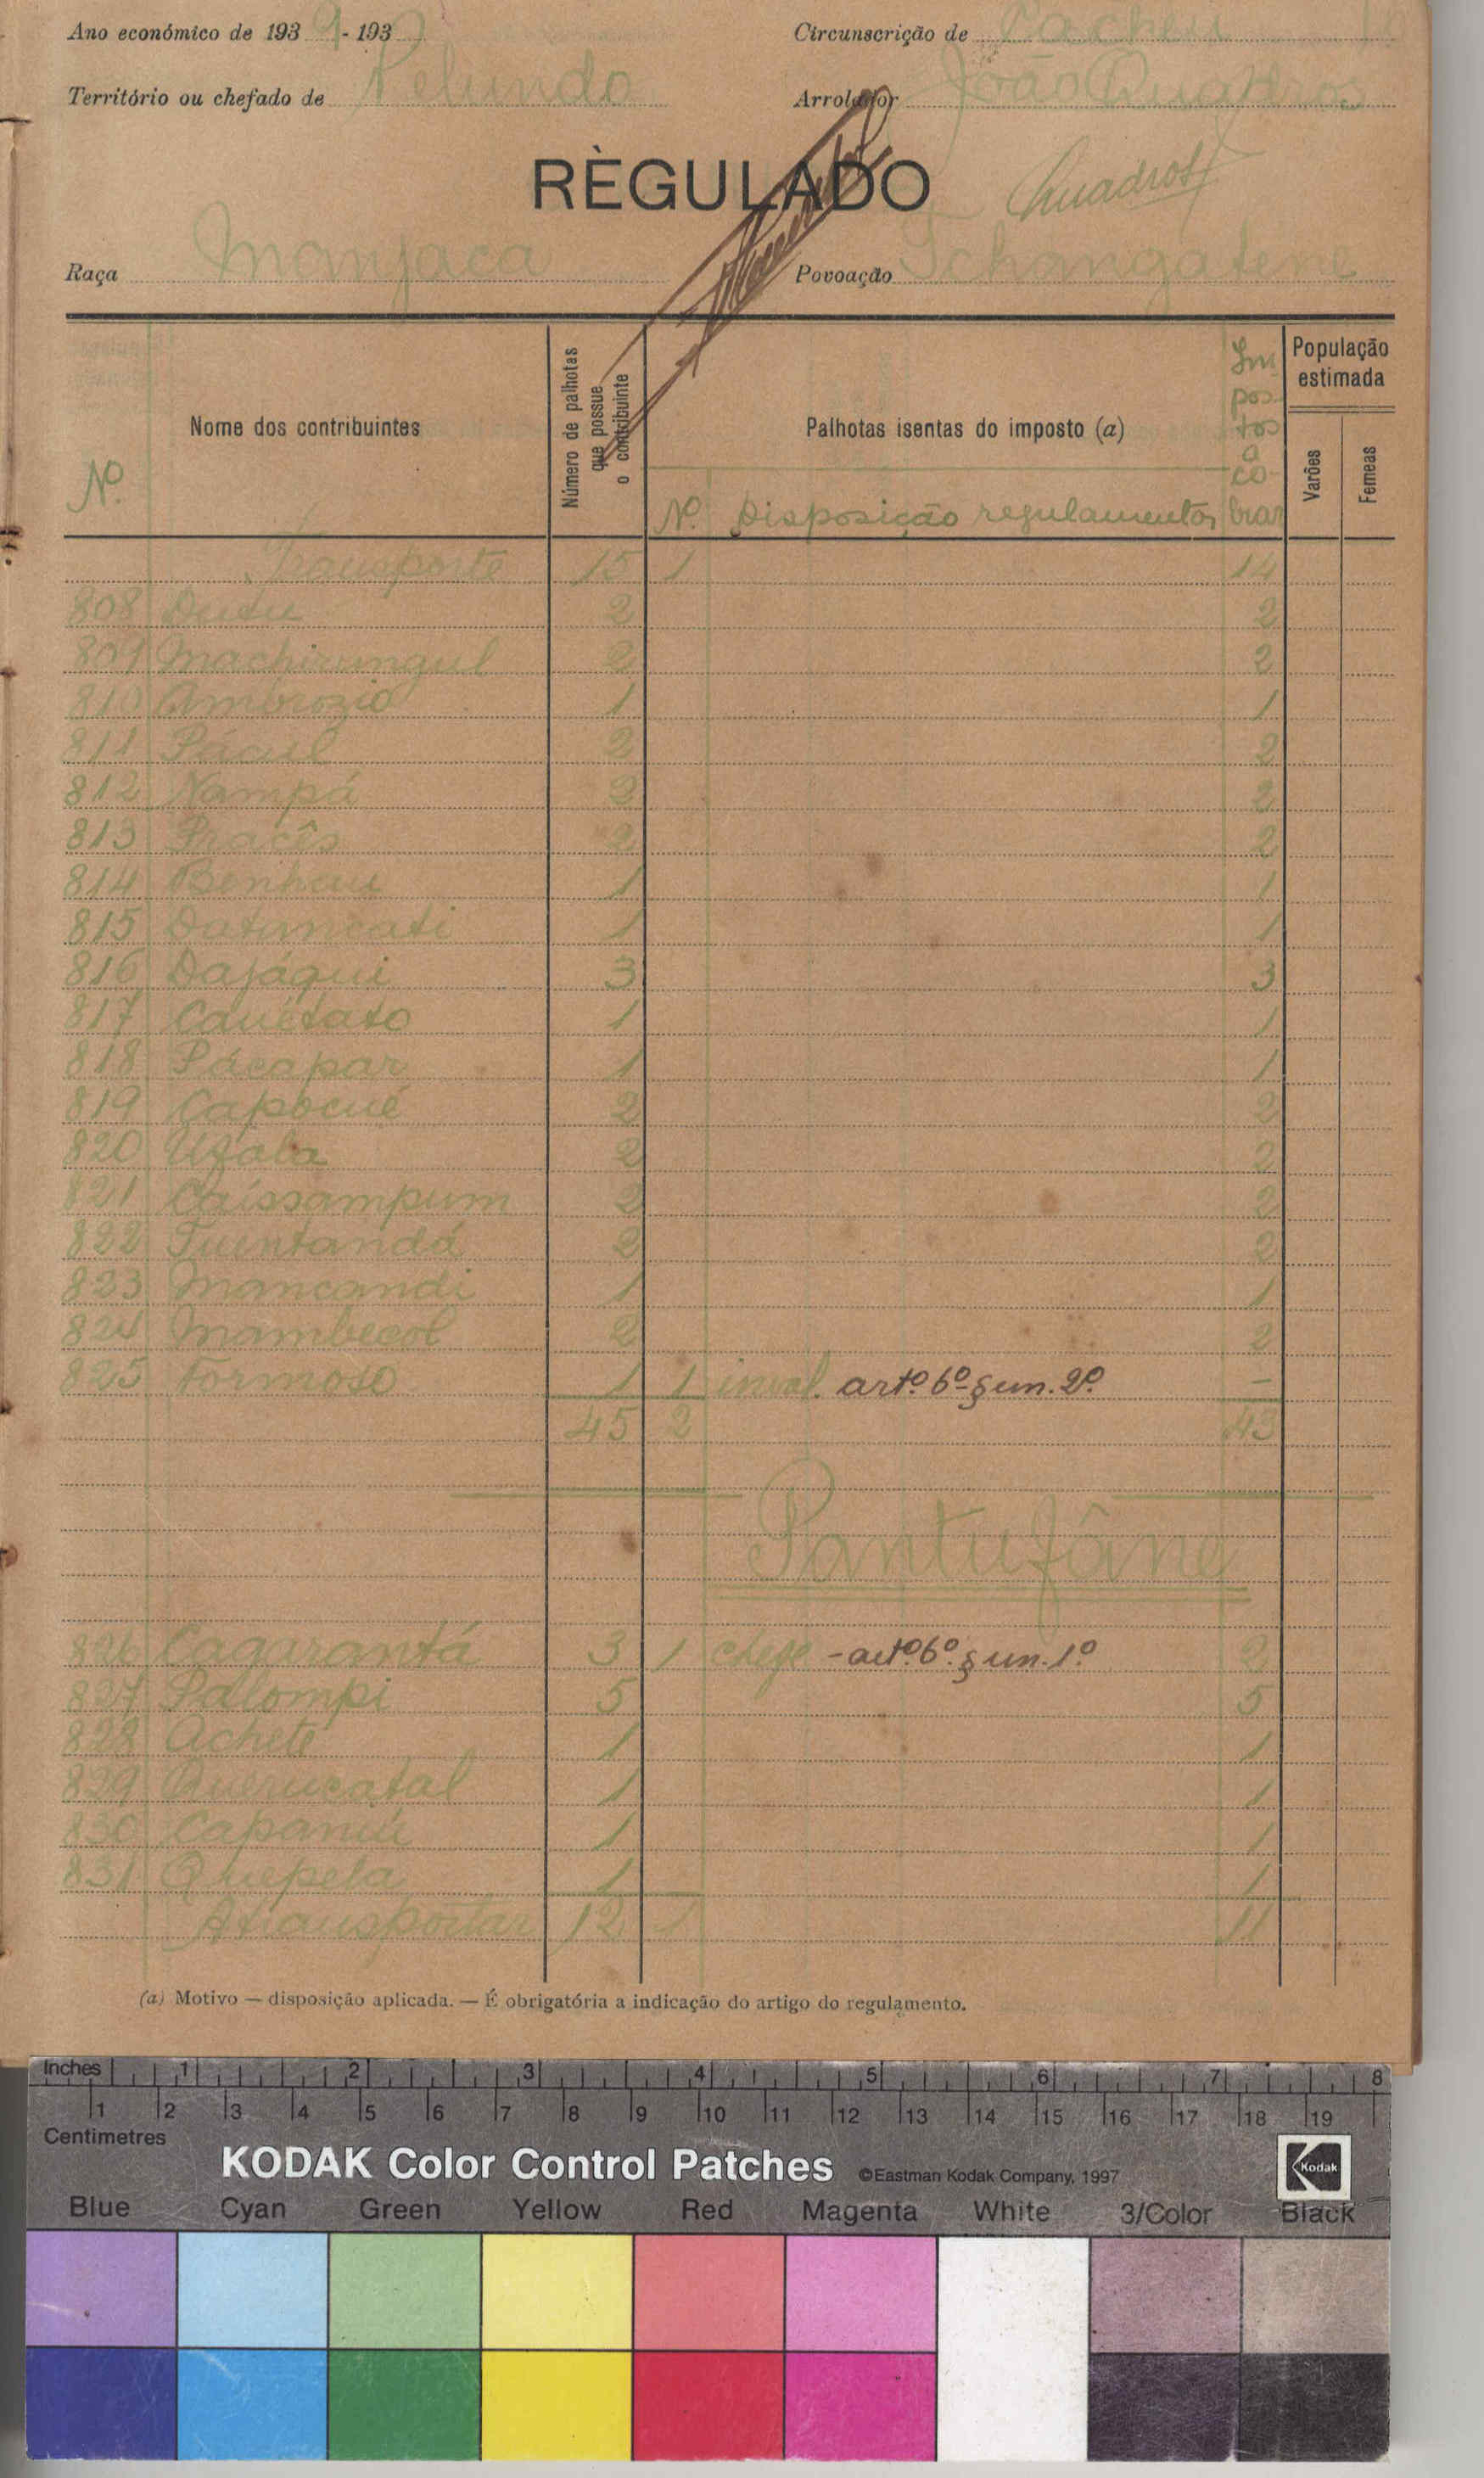 Ano económico de 1939-193 Circunscrição de Cacheu
Território ou chefado de Pelundo Arrolador João Quadros
RÈGULADO Quadros
Raça Manjaca Povoação Tchangatene
Nº Nome dos contribuintes Número de palhotas que possue o contribuinte Palhotas isentas do imposto (a) Impostos a cobrar População estimada
Nº Disposição regulamentar Varões Femeas
Transporte 15 1 14
808 Dutu 2 2
809 Machirungul 2 2
810 Ambrozio 1 1
811 Pácul 2 2
812 Nampá 2 2
813 Pracês 2 2
814 Benhau 1 1
815 Datuncati 1 1
816 Dajáqui 3 3
817 Cauétato 1 1
818 Pácapar 1 1
819 Capocué 2 2
820 Ufala 2 2
821 Caissampum 2 2
822 Tuentandá 2 2
823 Mancandi 1 1
824 Mambecol 2 2
825 Formoso 1 1 inval. artº 6º § un. 2º. –
45 2 43
Pantufâne
826 Cagarantá 3 1 chefe - artº 6º. § un. 1º 2
827 Palompi 5 5
828 Achete 1 1
829 Querucatal 1 1
830 Capaniu 1 1
831 Quepela 1 1
A transportar 12 1 11
(a) Motivo — disposição aplicada. — É obrigatória a indicação do artigo do regulamento.
Inches 1 2 3 4 5 6 7 8
1 2 3 4 5 6 7 8 9 10 11 12 13 14 15 16 17 18 19
Centimetres
KODAK Color Control Patches ©Eastman Kodak Company, 1997 Kodak
Blue Cyan Green Yellow Red Magenta White 3/Color Black